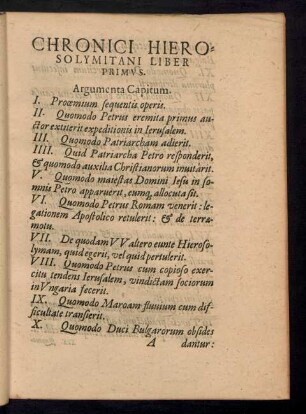 CHRONICI HIERO-
SOLYMITANI LIBER
PRIMVS.
Argumenta Capitum.
I. Proœmium sequentis operis.
II. Quomodo Petrus eremita primus au-
ctor extiterit expeditionis in Ierusalem.
III. Quomodo Patriarcham adierit.
IIII. Quid Patriarcha Petro responderit,
& quomodo auxilia Christianorum inuitârit.
V. Quomodo maiestas Domini Iesu in so-
mnis Petro apparuerit, eumq; allocuta sit.
VI. Quomodo Petrus Romam venerit: le-
gationem Apostolico retulerit: & de terræ-
motu.
VII. De quodam VValtero eunte Hieroso-
lymam, quid egerit, vel quid pertulerit.
VIII. Quomodo Petrus cum copioso exer-
citu tendens Ierusalem, vindictam sociorum
in Vngaria fecerit.
IX. Quomodo Maroam fluuium cum dif-
ficultate transierit.
X. Quomodo Duci Bulgarorum obsides
A dantur: